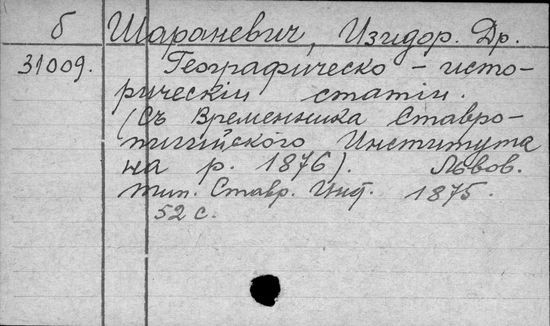 б Шараневич, Изидор. Др.
31009. Географическо-исто-
рическіи статіи.
(Съ Временника Ставро-
пигійского Института
на р. 1876). Львов.
тип. Ставр. Инст. 1875.
52 с.